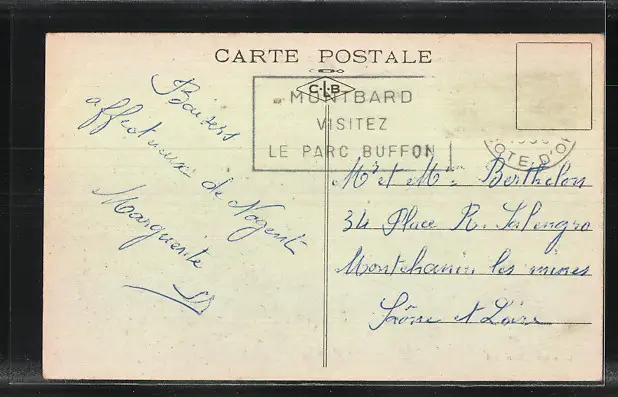 CARTE POSTALE
C.L.B
MONTBARD
VISITEZ
LE PARC BUFFON
COTE-D'O
Baisers
affectueux de Nogent
Marguerite
Mr et Mme Berthelon
34 Place R. Salengro
Montchanin les mines
Saône et Loire